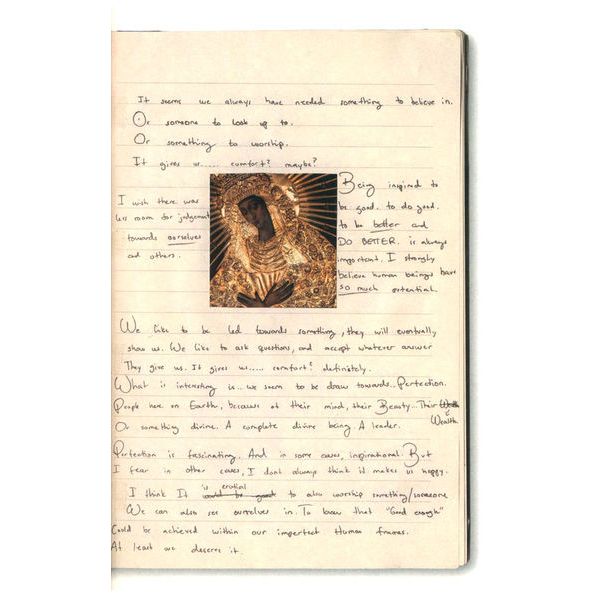 It seems we always have needed something to believe in.
Or someone to look up to.
Or something to worship.
It gives us..... comfort? maybe?
I wish there was
less room for judgement
towards ourselves
and others.
Being inspired to
be good. to do good.
to be better and
DO BETTER. is always
important. I strongly
believe human beings have
so much potential.
We like to be led towards something, they will eventually,
show us. We like to ask questions, and accept whatever answer
They give us. It gives us..... comfort? definitely.
What is interesting is.. we seem to be draw towards.. Perfection.
People here on Earth, because of their mind, their Beauty... Their Wealth.
Or something divine. A complete divine being. A leader.
Perfection is fascinating. And in some cases, inspirational. But
I fear in other cases, I dont always think it makes us happy.
I think It is crucial to also worship something/someone
We can also see ourselves in. To know that "Good enough"
Could be achieved within our imperfect Human frames.
At least we deserve it.